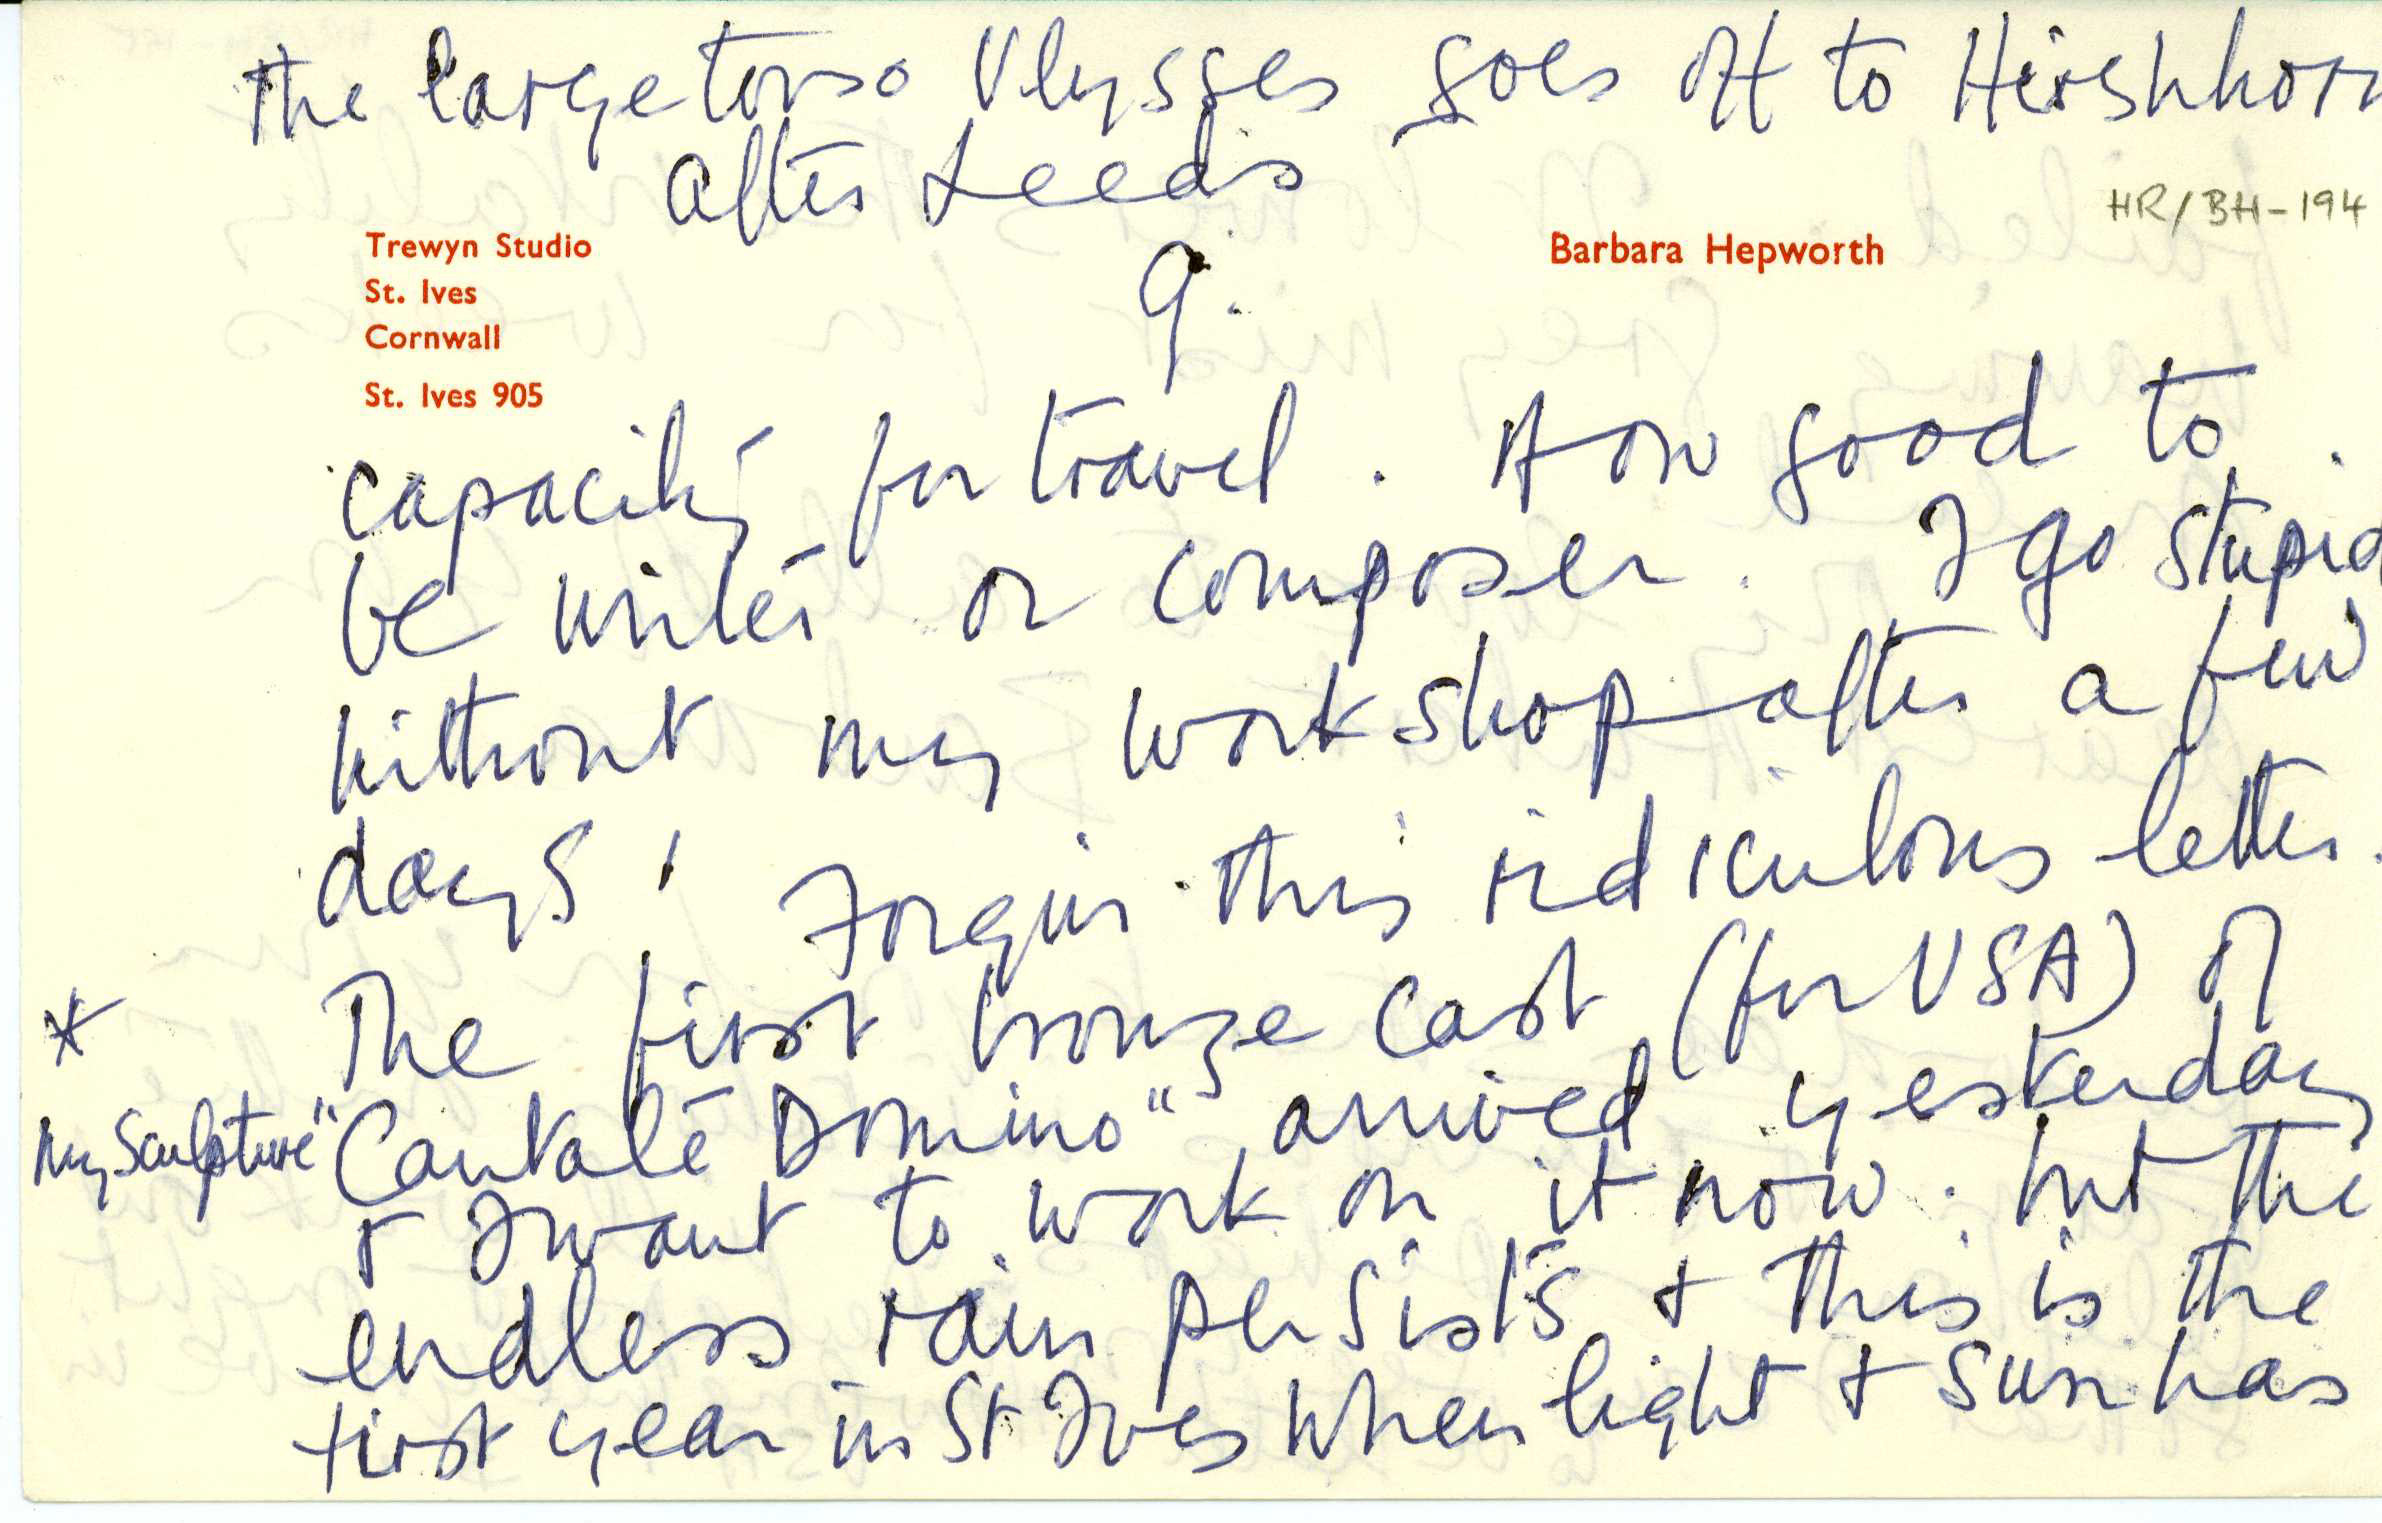 the large torso Ulysses goes off to Hirshhorn
after Leeds
HR/BH-194
Trewyn Studio
St. Ives
Cornwall
St. Ives 905
Barbara Hepworth
9.
capacity for travel. How good to
be writer or composer. I go stupid
without my workshop after a few
days! Forgive this ridiculous letter.
* The first bronze cast (for USA) of
my sculpture "Cantate Domino" arrived yesterday
& I want to work on it now. but the
endless rain persists & this is the
first year in St Ives when light & sun has